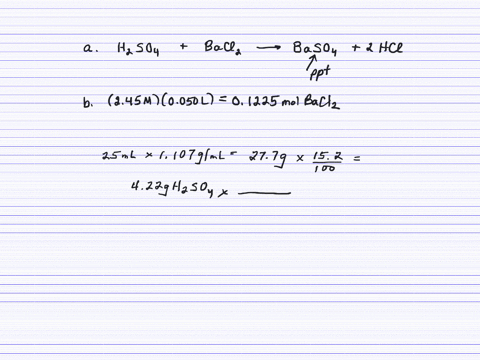 a. H₂SO₄ + BaCl₂ → BaSO₄ + 2 HCl
ppt
b. (2.45M)(0.050L) = 0.1225 mol BaCl₂
25mL × 1.107g/mL = 27.7g × 15.2/100 =
4.22g H₂SO₄ ×